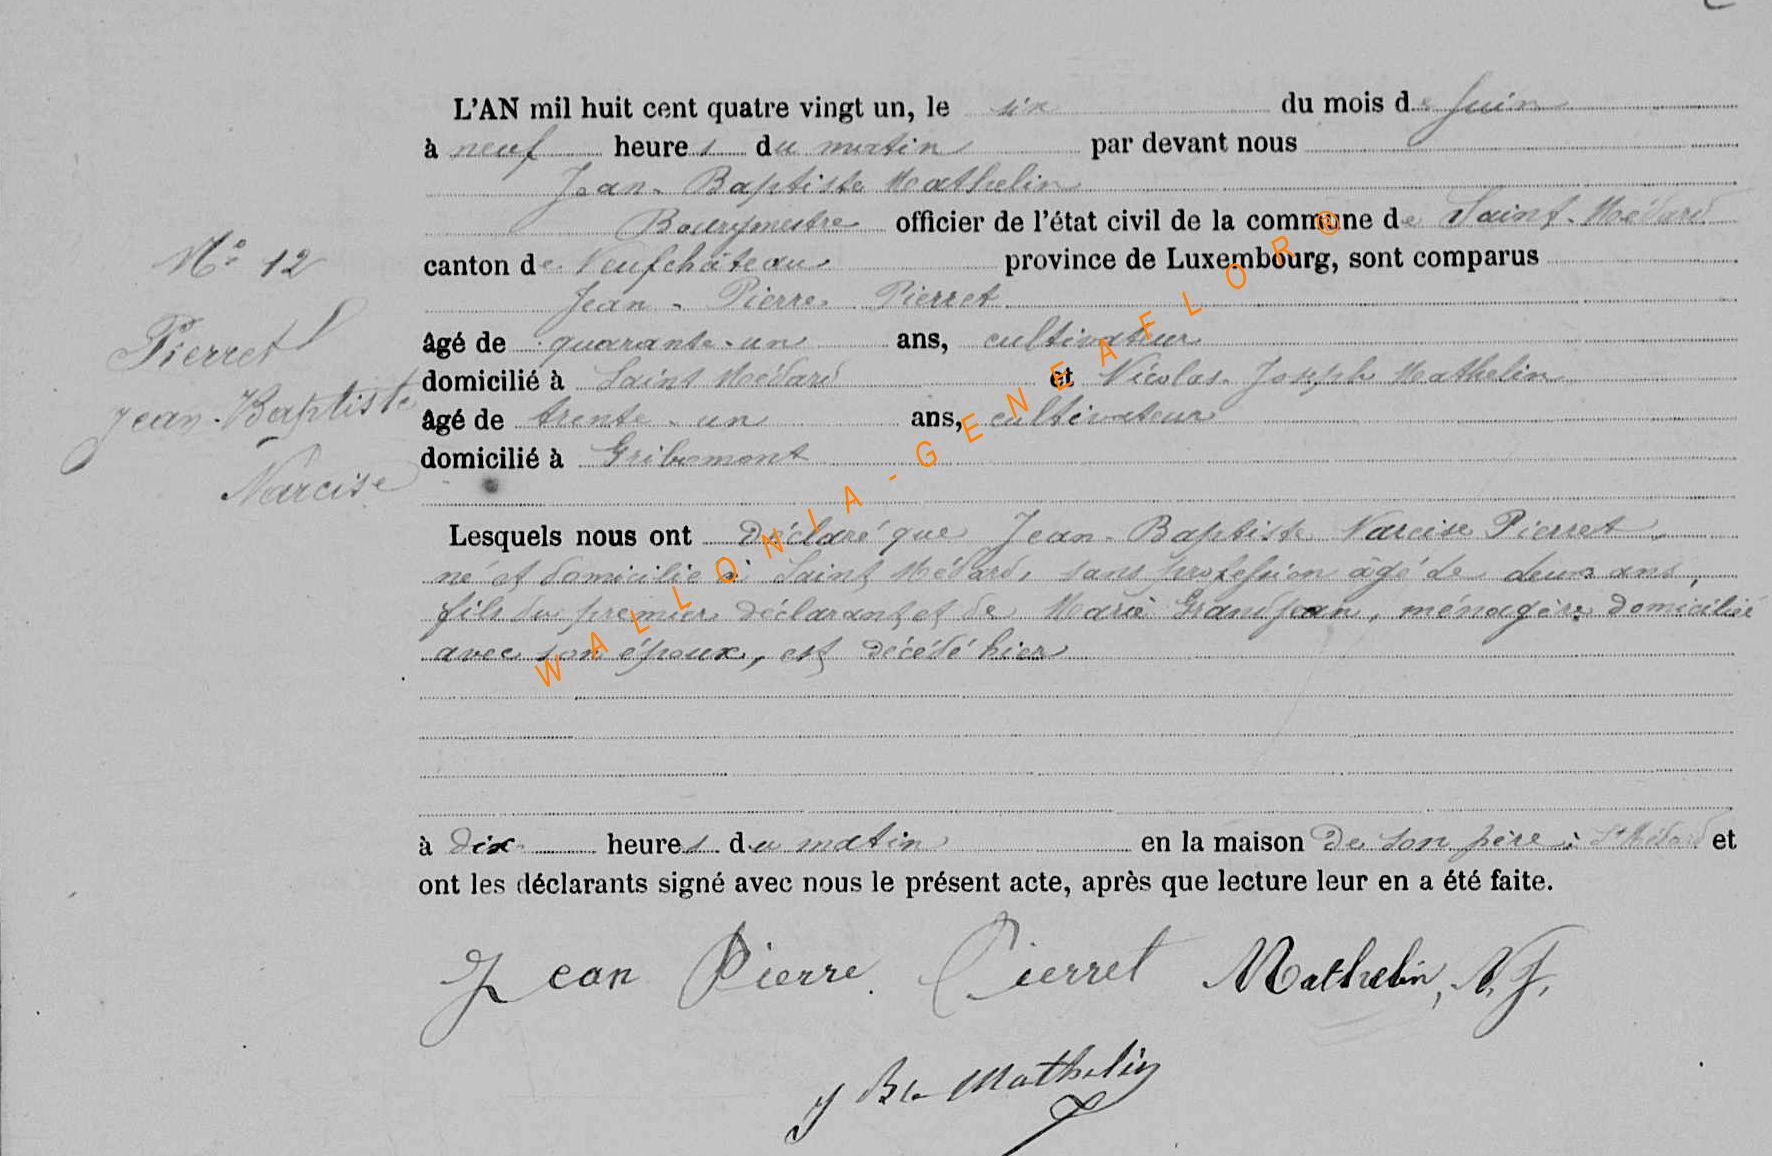 L'AN mil huit cent quatre vingt un, le six du mois de Juin
à neuf heures du matin par devant nous
Jean-Baptiste Mathelin
Bourgmestre officier de l'état civil de la commune de Saint-Médard
canton de Neufchâteau province de Luxembourg, sont comparus
Jean-Pierre Pierret
âgé de quarante-un ans, cultivateur
domicilié à Saint Médard et Nicolas-Joseph Mathelin
âgé de trente-un ans, cultivateur
domicilié à Gribomont
Lesquels nous ont déclaré que Jean-Baptiste Narcise Pierret,
né et domicilié à Saint Médard, sans profession âgé de deux ans,
fils du premier déclarant et de Marie Grandjean, ménagère domiciliée
avec son époux, est décédé hier
à dix heures du matin en la maison de son père à St Médard et
ont les déclarants signé avec nous le présent acte, après que lecture leur en a été faite.
Jean Pierre Pierret Mathelin, N. J.
J Bte Mathelin
N° 12
Pierret
Jean-Baptiste
Narcise
WALLONIA-GENEAFLOR®